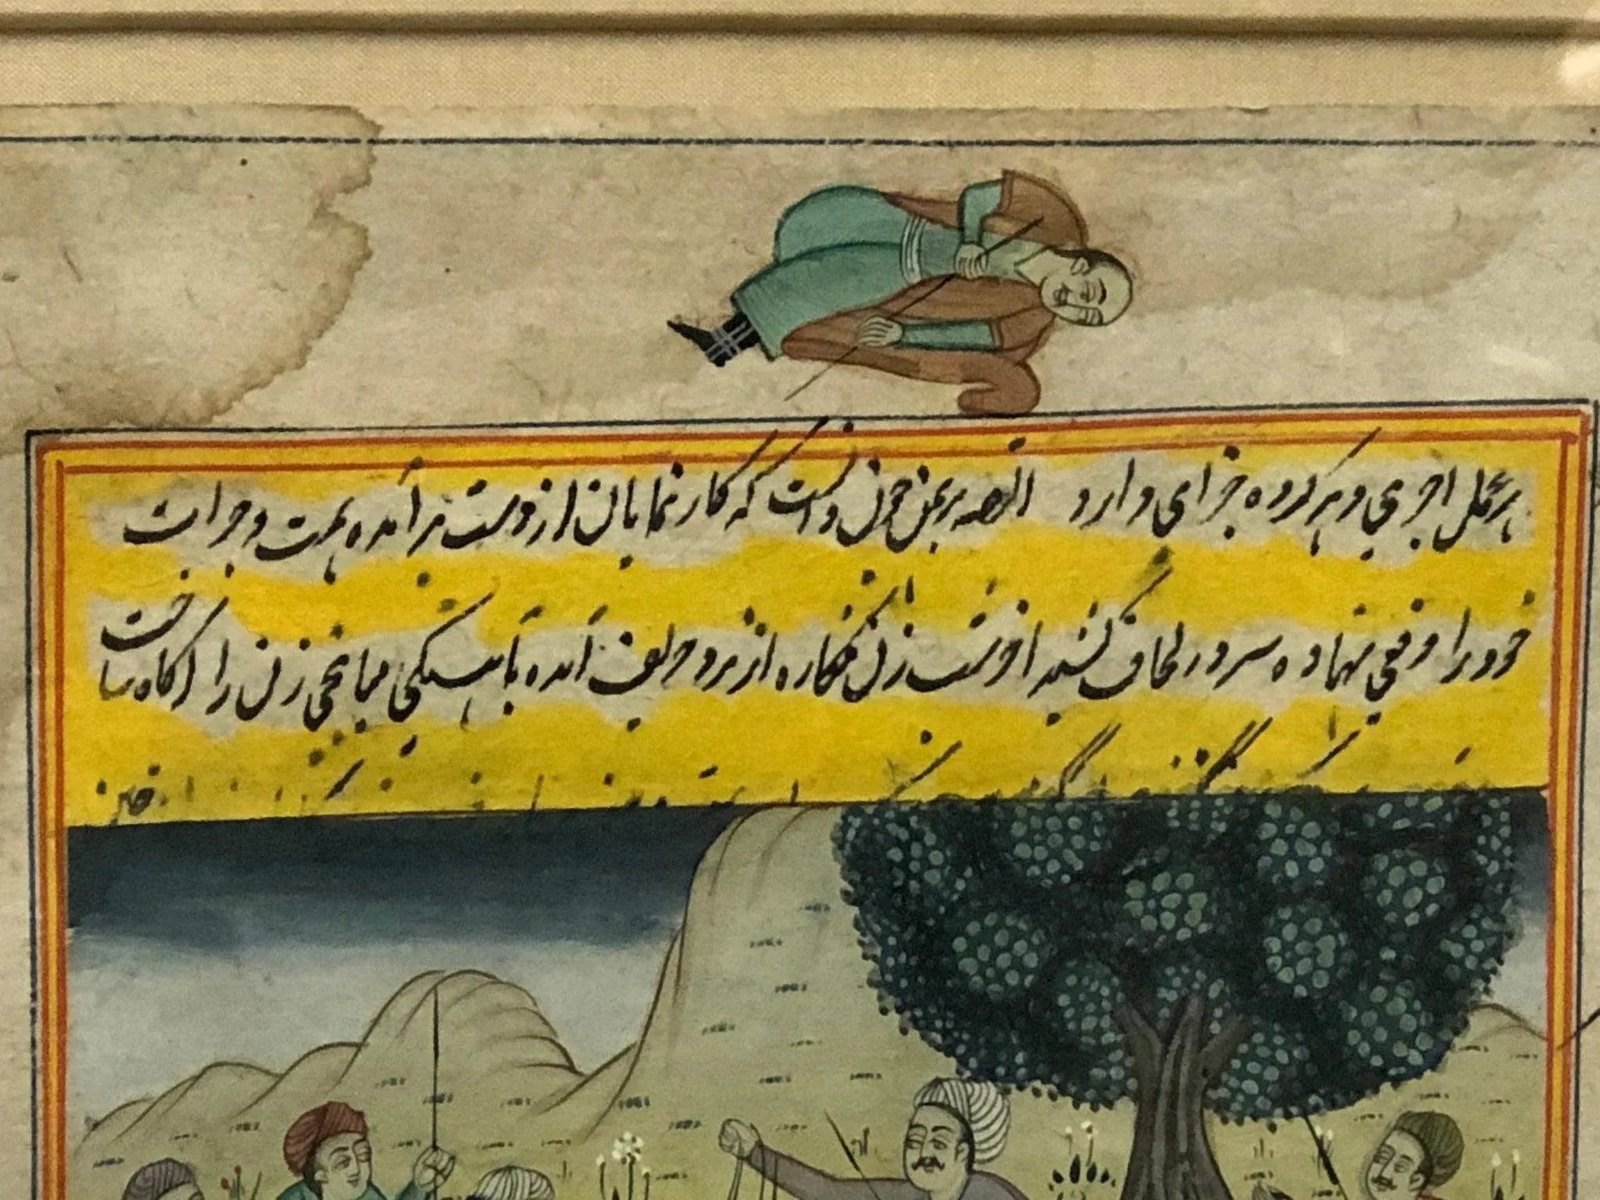 هر عمل اجری و هر کرده جزای دارد القصه برهمن چون دانست که کار نمایان از دست برآمده همت و جرات
خود را وقعی نهاده سر در لحاف کشید آخر شب زن مکاره از نزد حریف آمده بآهستگی میانجی زن را آگاه ساخت